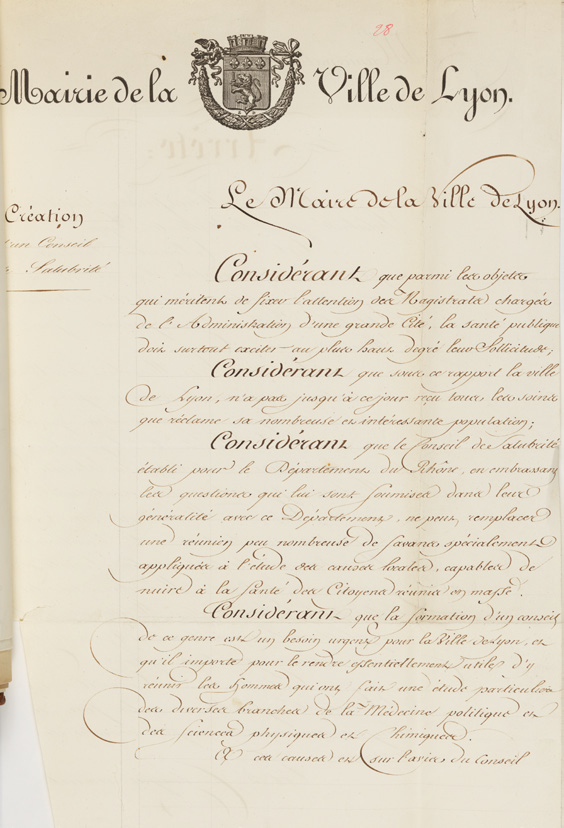 28
Mairie de la Ville de Lyon.
Le Maire de la Ville de Lyon.
Création
d'un Conseil
de Salubrité
Considérant que parmi les objets
qui méritent de fixer l'attention des Magistrats chargés
de l'Administration d'une grande Cité, la santé publique
doit surtout exciter au plus haut degré leur Sollicitude;
Considérant que sous ce rapport la ville
de Lyon, n'a pas jusqu'à ce jour reçu tous les soins
que réclame sa nombreuse et intéressante population;
Considérant que le Conseil de Salubrité
établi pour le Département du Rhône, en embrassant
les questions qui lui sont soumises dans leur
généralité avec ce Département, ne peut remplacer
une réunion peu nombreuse de savans spécialement
appliqués à l'étude des causes locales, capables de
nuire à la Santé des Citoyens réunis en masse.
Considérant que la formation d'un conseil
de ce genre est un besoin urgent pour la Ville de Lyon, et
qu'il importe pour le rendre essentiellement utile d'y
réunir les hommes qui ont fait une étude particulière
des diverses branches de la Médecine politique et
des Sciences physiques et Chimiques.
À ces causes et sur l'avis du Conseil